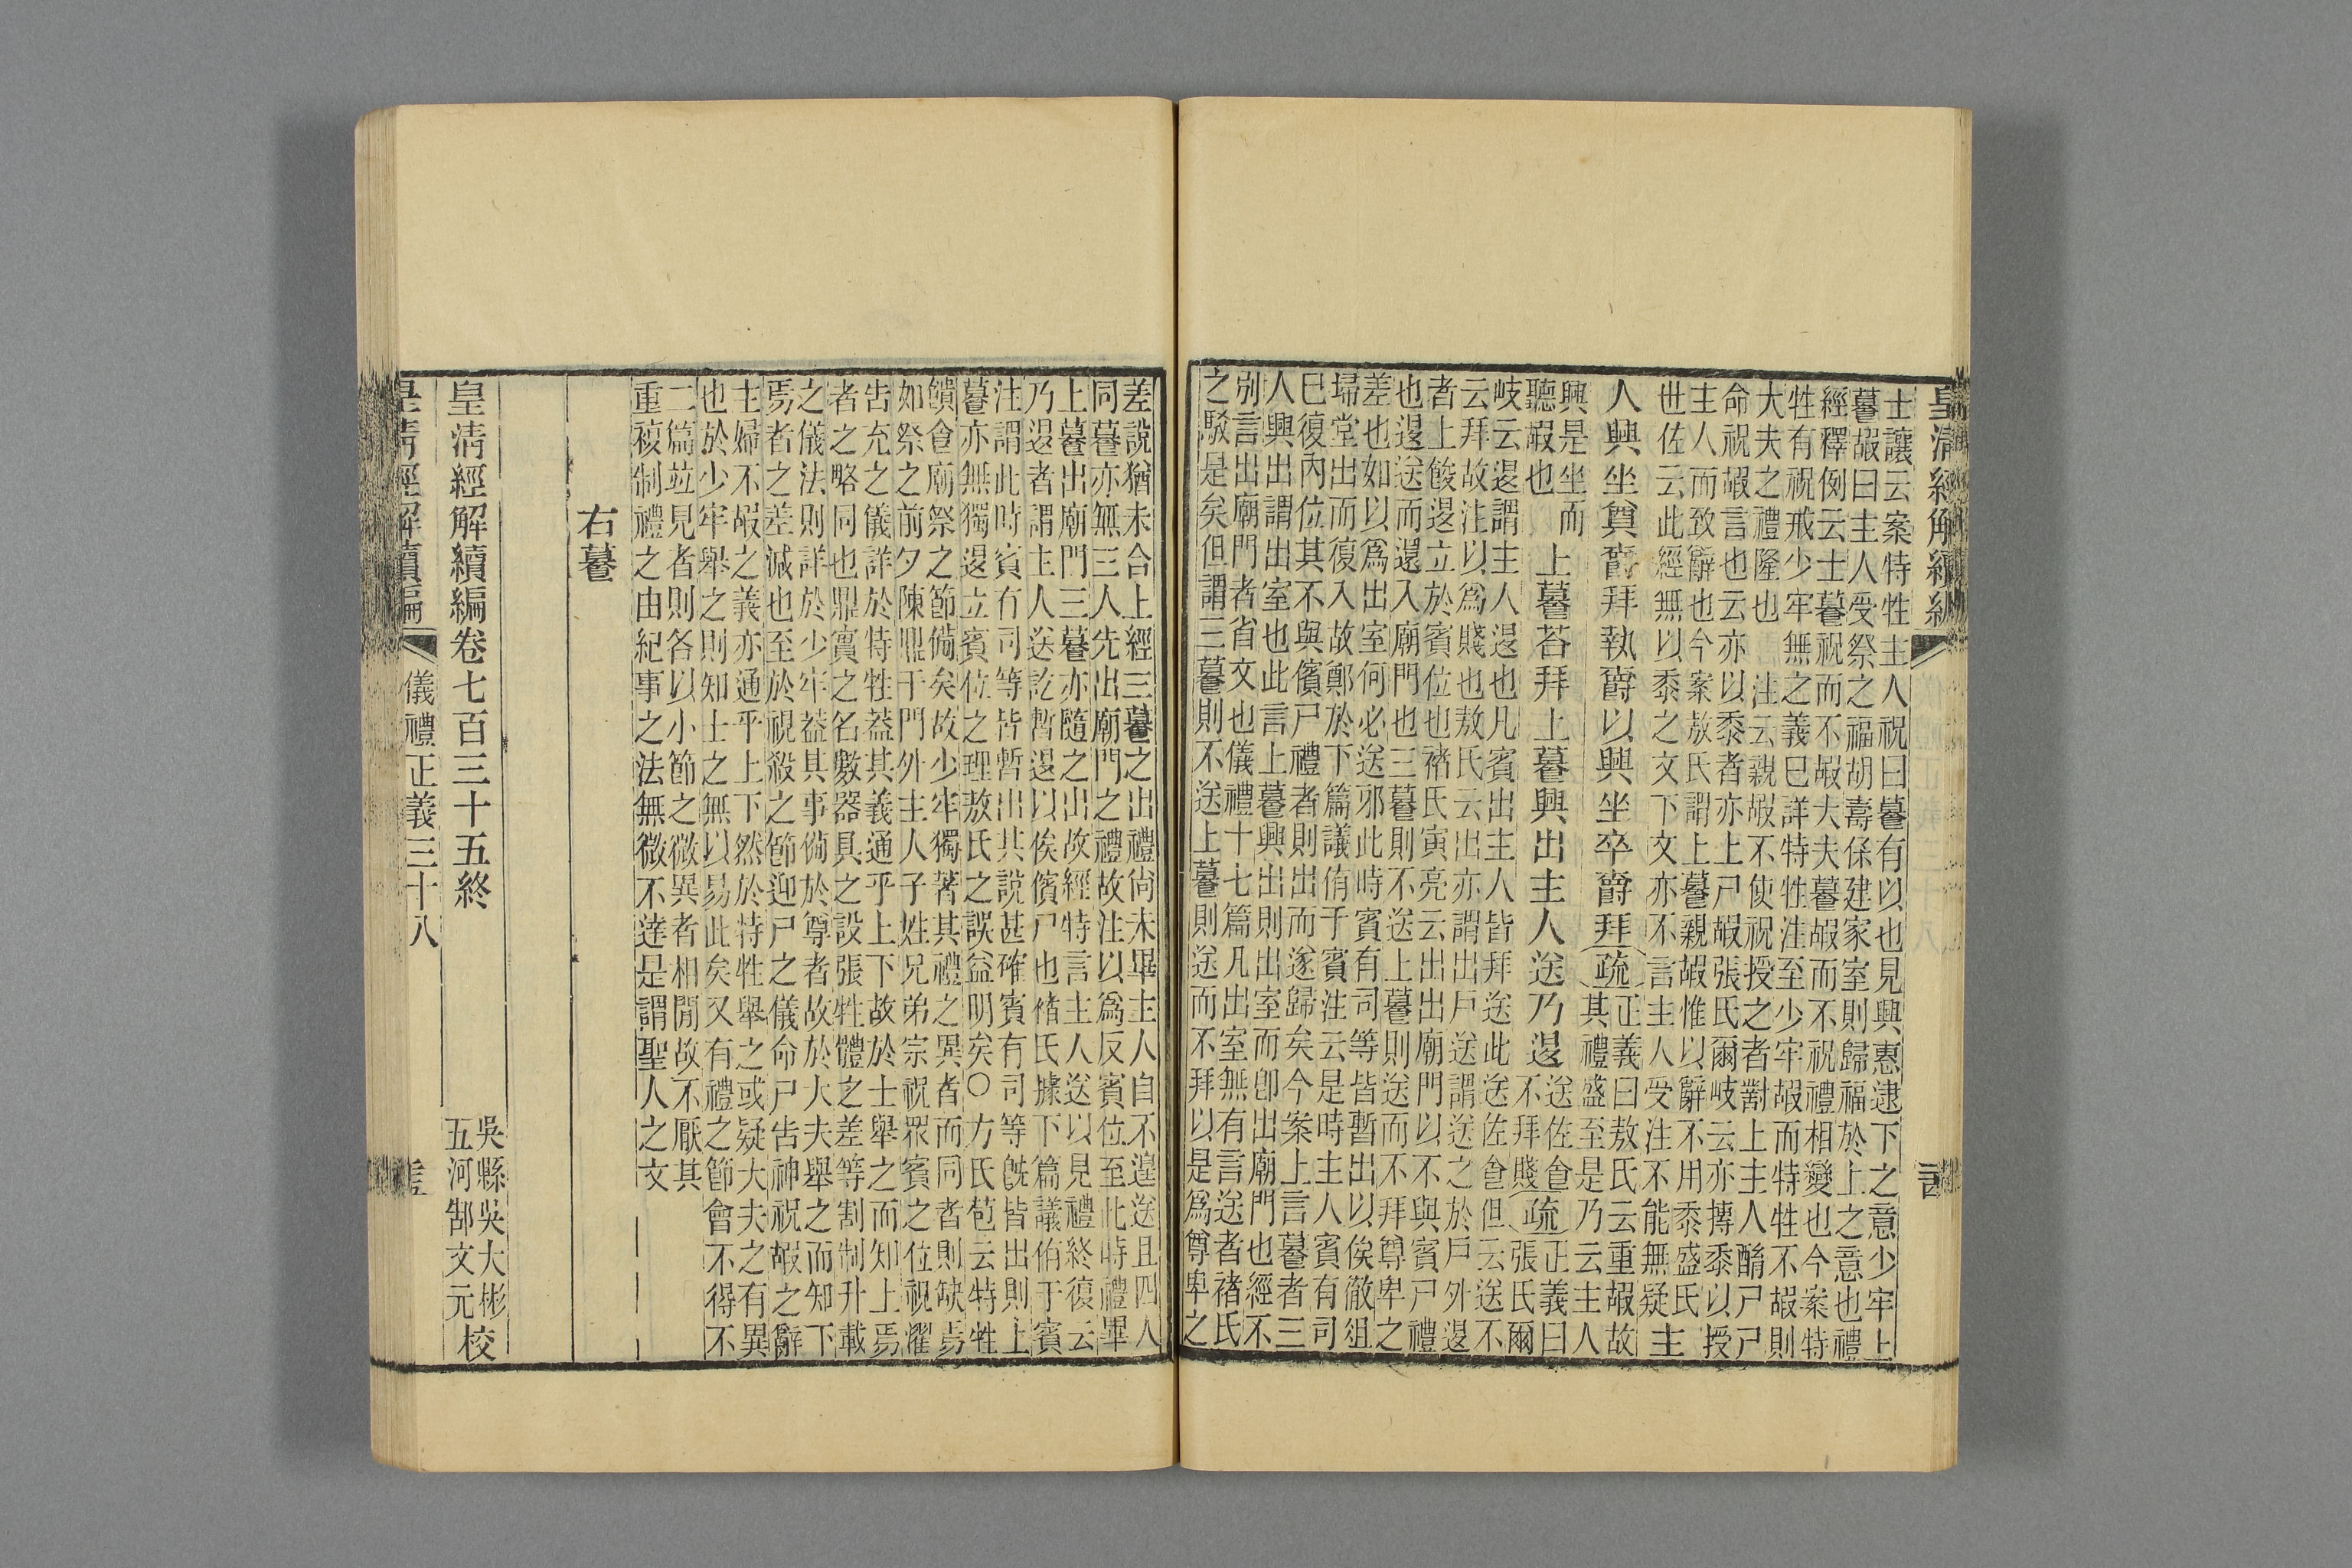 皇清經解續編
士讓云案特牲主人祝曰䉵有以也見興惠逮下之意少牢上
䉵嘏曰主人受祭之福胡壽保建家室則歸福於上之意也禮
經釋例云士䉵祝而不嘏大夫䉵嘏而不祝禮相變也今案特
牲有祝戒少牢無之義巳詳特牲注至少牢嘏而特牲不嘏則
大夫之禮隆也　注云親嘏不使祝授之者對上主人酳尸尸
命祝嘏言也云亦以黍者亦上尸嘏張氏爾岐云亦摶黍以授
主人而致辭也今案敖氏謂上䉵親嘏惟以辭不用黍盛氏
世佐云此經無以黍之文下文亦不言主人受注不能無疑主
人興坐奠爵拜執爵以興坐卒爵拜疏正義曰敖氏云重嘏故
其禮盛至是乃云主人
興是坐而
聽嘏也上䉵荅拜上䉵興出主人送乃退送佐食
不拜賤疏正義曰
張氏爾
岐云退謂主人退也凡賓出主人皆拜送此送佐食但云送不
云拜故注以爲賤也敖氏云出亦謂出戸送謂送之於戸外退
者上餕退立於賓位也褚氏寅亮云出出廟門以不與賓尸禮
也退送而還入廟門也三䉵則不送上䉵則送而不拜尊卑之
差也如以爲出室何必送邪此時賓有司等皆暫出以俟徹俎
埽堂出而復入故鄭於下篇議侑于賓注云是時主人賓有司
巳復內位其不與儐尸禮者則出而遂歸矣今案上言䉵者三
人興出謂出室也此言上䉵興出則出室而卽出廟門也經不
別言出廟門者省文也儀禮十七篇凡出室無有言送者褚氏
之駁是矣但謂三䉵則不送上䉵則送而不拜以是爲尊卑之
差說猶未合上經三䉵之出禮尚未畢主人自不遑送且四人
同䉵亦無三人先出廟門之禮故注以爲反賓位至此時禮畢
上䉵出廟門三䉵亦隨之出故經特言主人送以見禮終復云
乃退者謂主人送訖暫退以俟儐尸也褚氏據下篇議侑于賓
注謂此時賓有司等皆暫出其說甚確賓有司等旣皆出則上
䉵亦無獨退立賓位之理敖氏之誤益明矣○方氏苞云特牲
饋食廟祭之節備矣故少牢獨著其禮之異者而同者則缺焉
如祭之前夕陳鼎于門外主人子姓兄弟宗祝眾賓之位視濯
告充之儀詳於特牲葢其義通乎上下故於士舉之而知上焉
者之略同也鼎實之名數器具之設張牲體之差等割制升載
之儀法則詳於少牢葢其事備於尊者故於大夫舉之而知下
焉者之差減也至於視殺之節迎尸之儀命尸告神祝嘏之辭
主婦不嘏之義亦通乎上下然於特牲舉之或疑大夫之有異
也於少牢舉之則知士之無以易此矣又有禮之節會不得不
二篇竝見者則各以小節之微異者相閒故不厭其
重複制禮之由紀事之法無微不達是謂聖人之文
右䉵
皇清經解續編卷七百三十五終
吳縣吳大彬
五河郜文元校
皇清經解續編
儀禮正義三十八